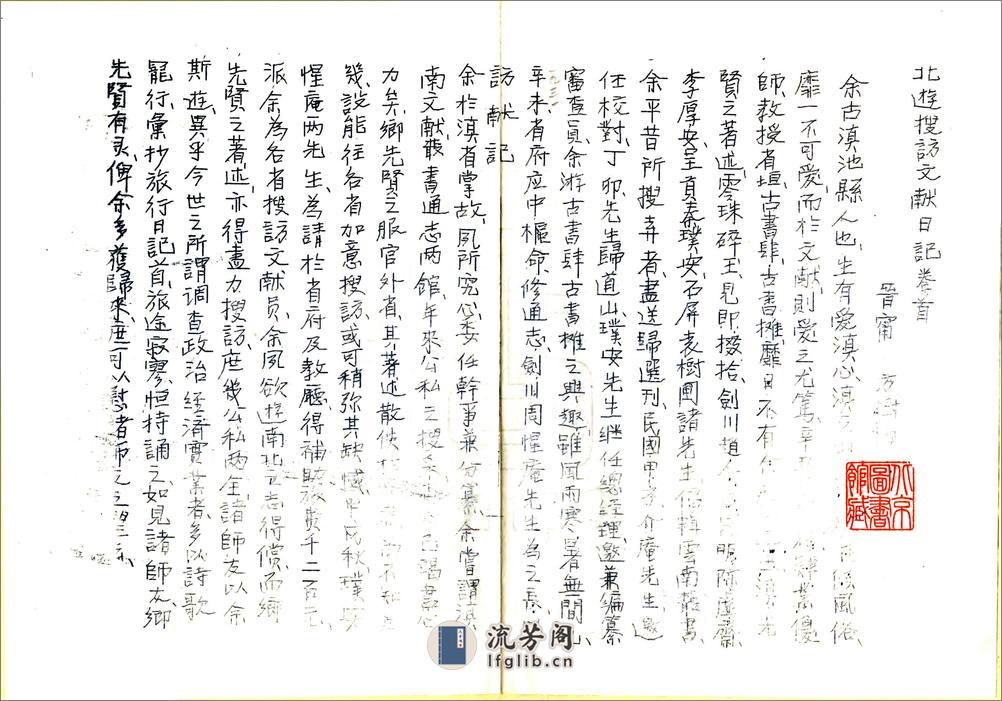 北遊搜訪文献日記卷首
晋甯 方樹
余古滇池縣人也生有爱滇心滇之 風俗
靡一不可爱而於文献則爱之尤篤辛 優
師教授省垣古書肆古書摊靡日不有 滇先
賢之著述零珠碎玉見即掇拾劍川趙 陳虚齋
李厚安呈貢秦璞安石屏袁樹圃諸先生 輯雲南叢書
余平昔所搜弆者盡送歸選刊民國甲子介庵先生邀
任校對丁卯先生歸道山璞安先生继任總经理邀兼编纂
審查員余游古書肆古書摊之興趣雖風雨寒暑者無間
辛未省府应中樞命修通志劍川周惺庵先生為之長
訪献記
余於滇省掌故夙所究心委任幹事兼分纂余嘗謂滇
南文献叢書通志兩館年来公私之搜 已竭盡心
力矣鄉先賢之服官外省其著述散佚 不知凡
幾設能往各省加意搜訪或可稍弥其缺憾甲戌秋璞安
惺庵两先生為請於省府及教廳得補助旅费千二百元
派余為各省搜訪文献員余夙欲遊南北之志得償而鄉
先賢之著述亦得盡力搜訪庶幾公私两全諸師友以余
斯遊異乎今世之所謂调查政治经濟實業者多以詩歌
寵行彙抄旅行日記首旅途寂寥恒持誦之如見諸師友鄉
先賢有灵俾余多獲歸來庶可以慰者師友之望
北京圖書館藏
流芳阁
lfglib.cn